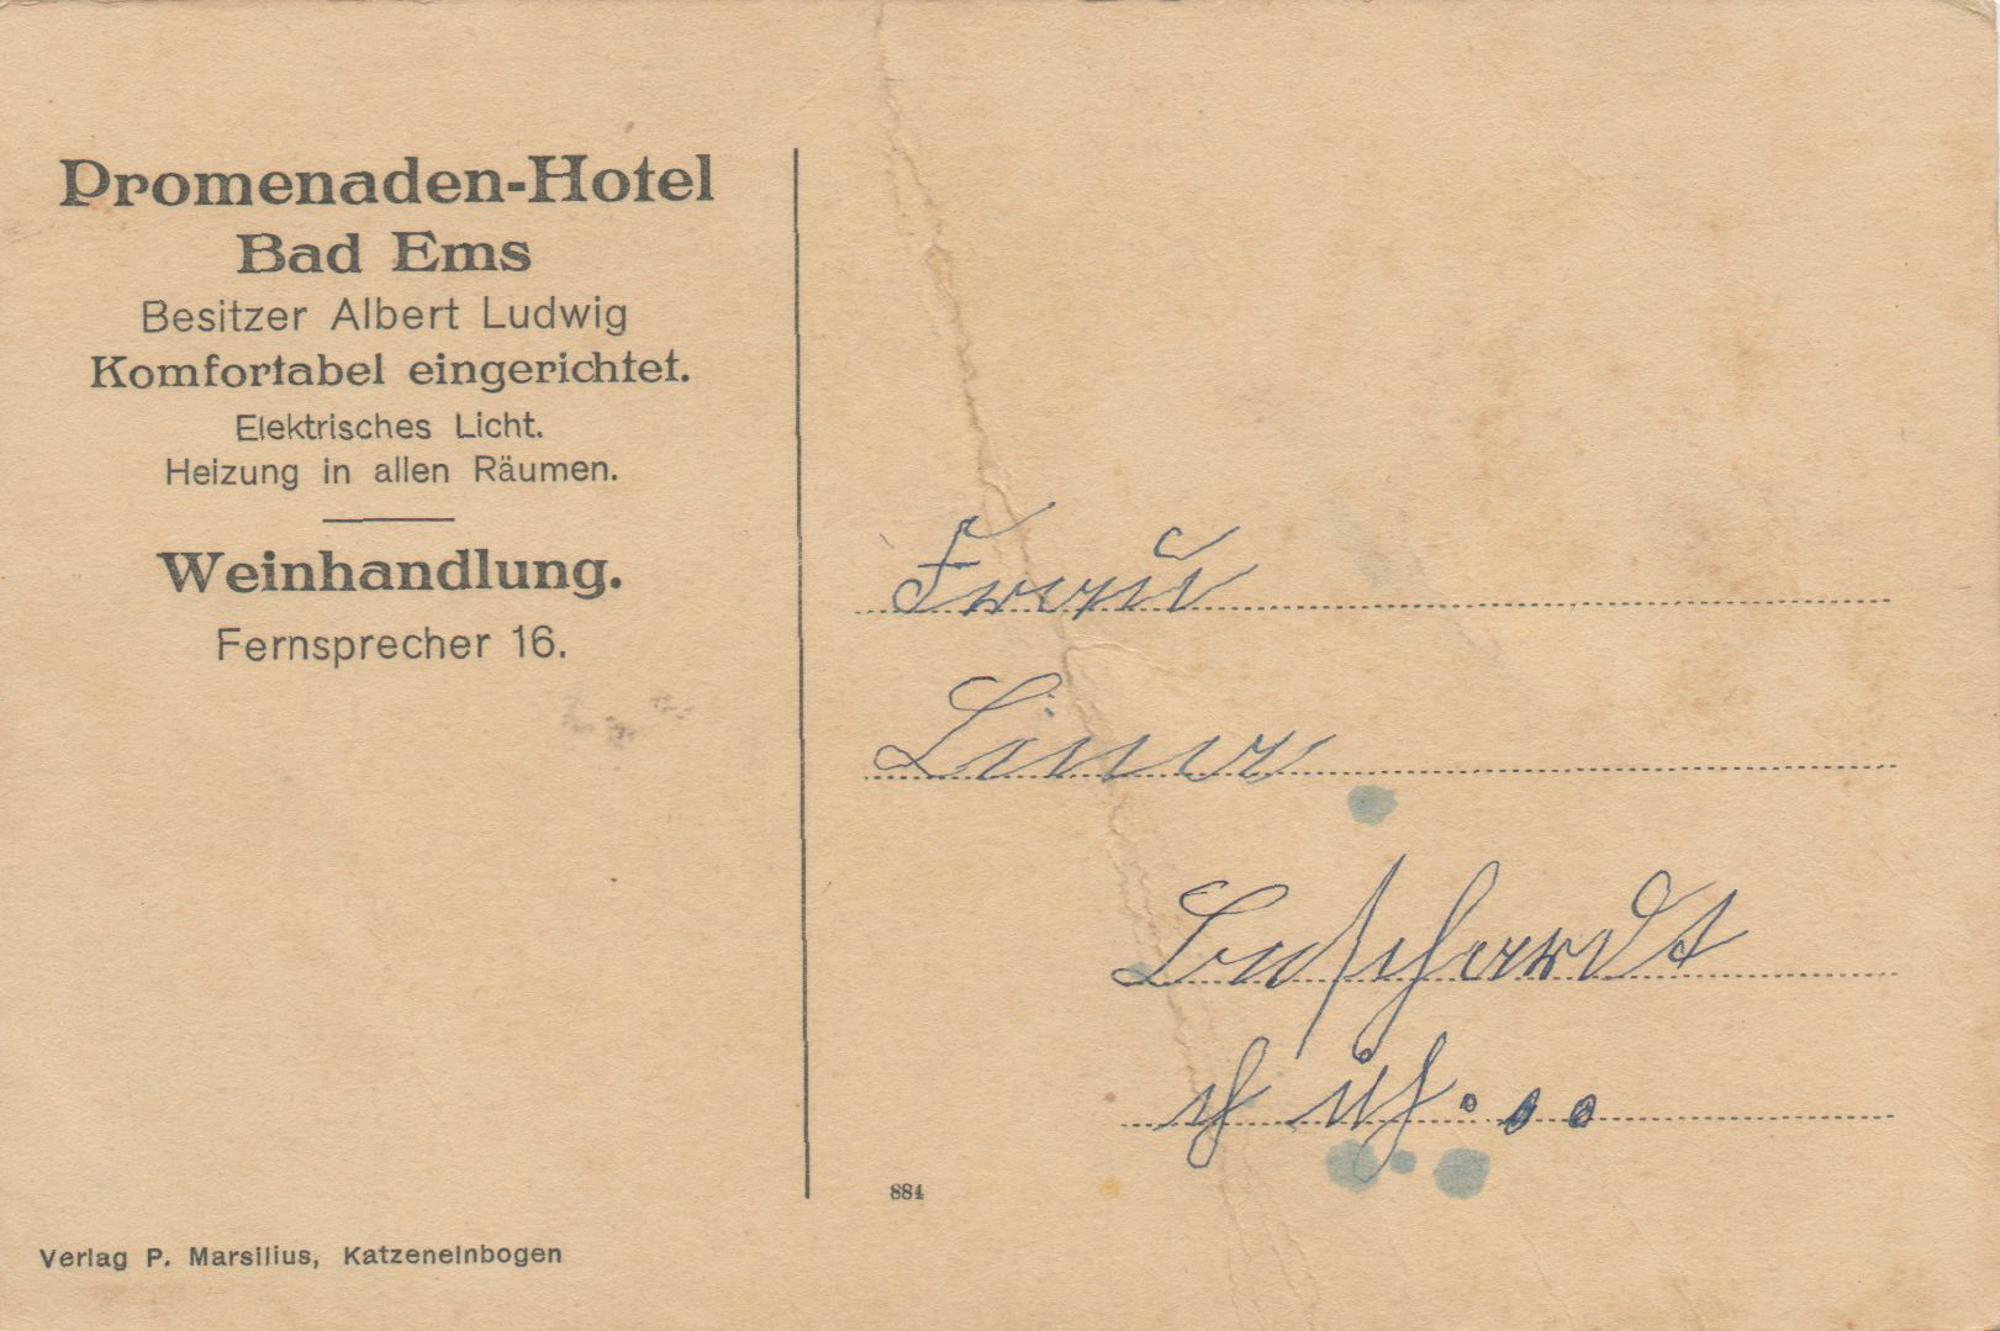 Promenaden-Hotel
Bad Ems
Besitzer Albert Ludwig
Komfortabel eingerichtet.
Elektrisches Licht.
Heizung in allen Räumen.
Weinhandlung.
Fernsprecher 16.
Verlag P. Marsilius, Katzenelnbogen
Frau
Lina
884